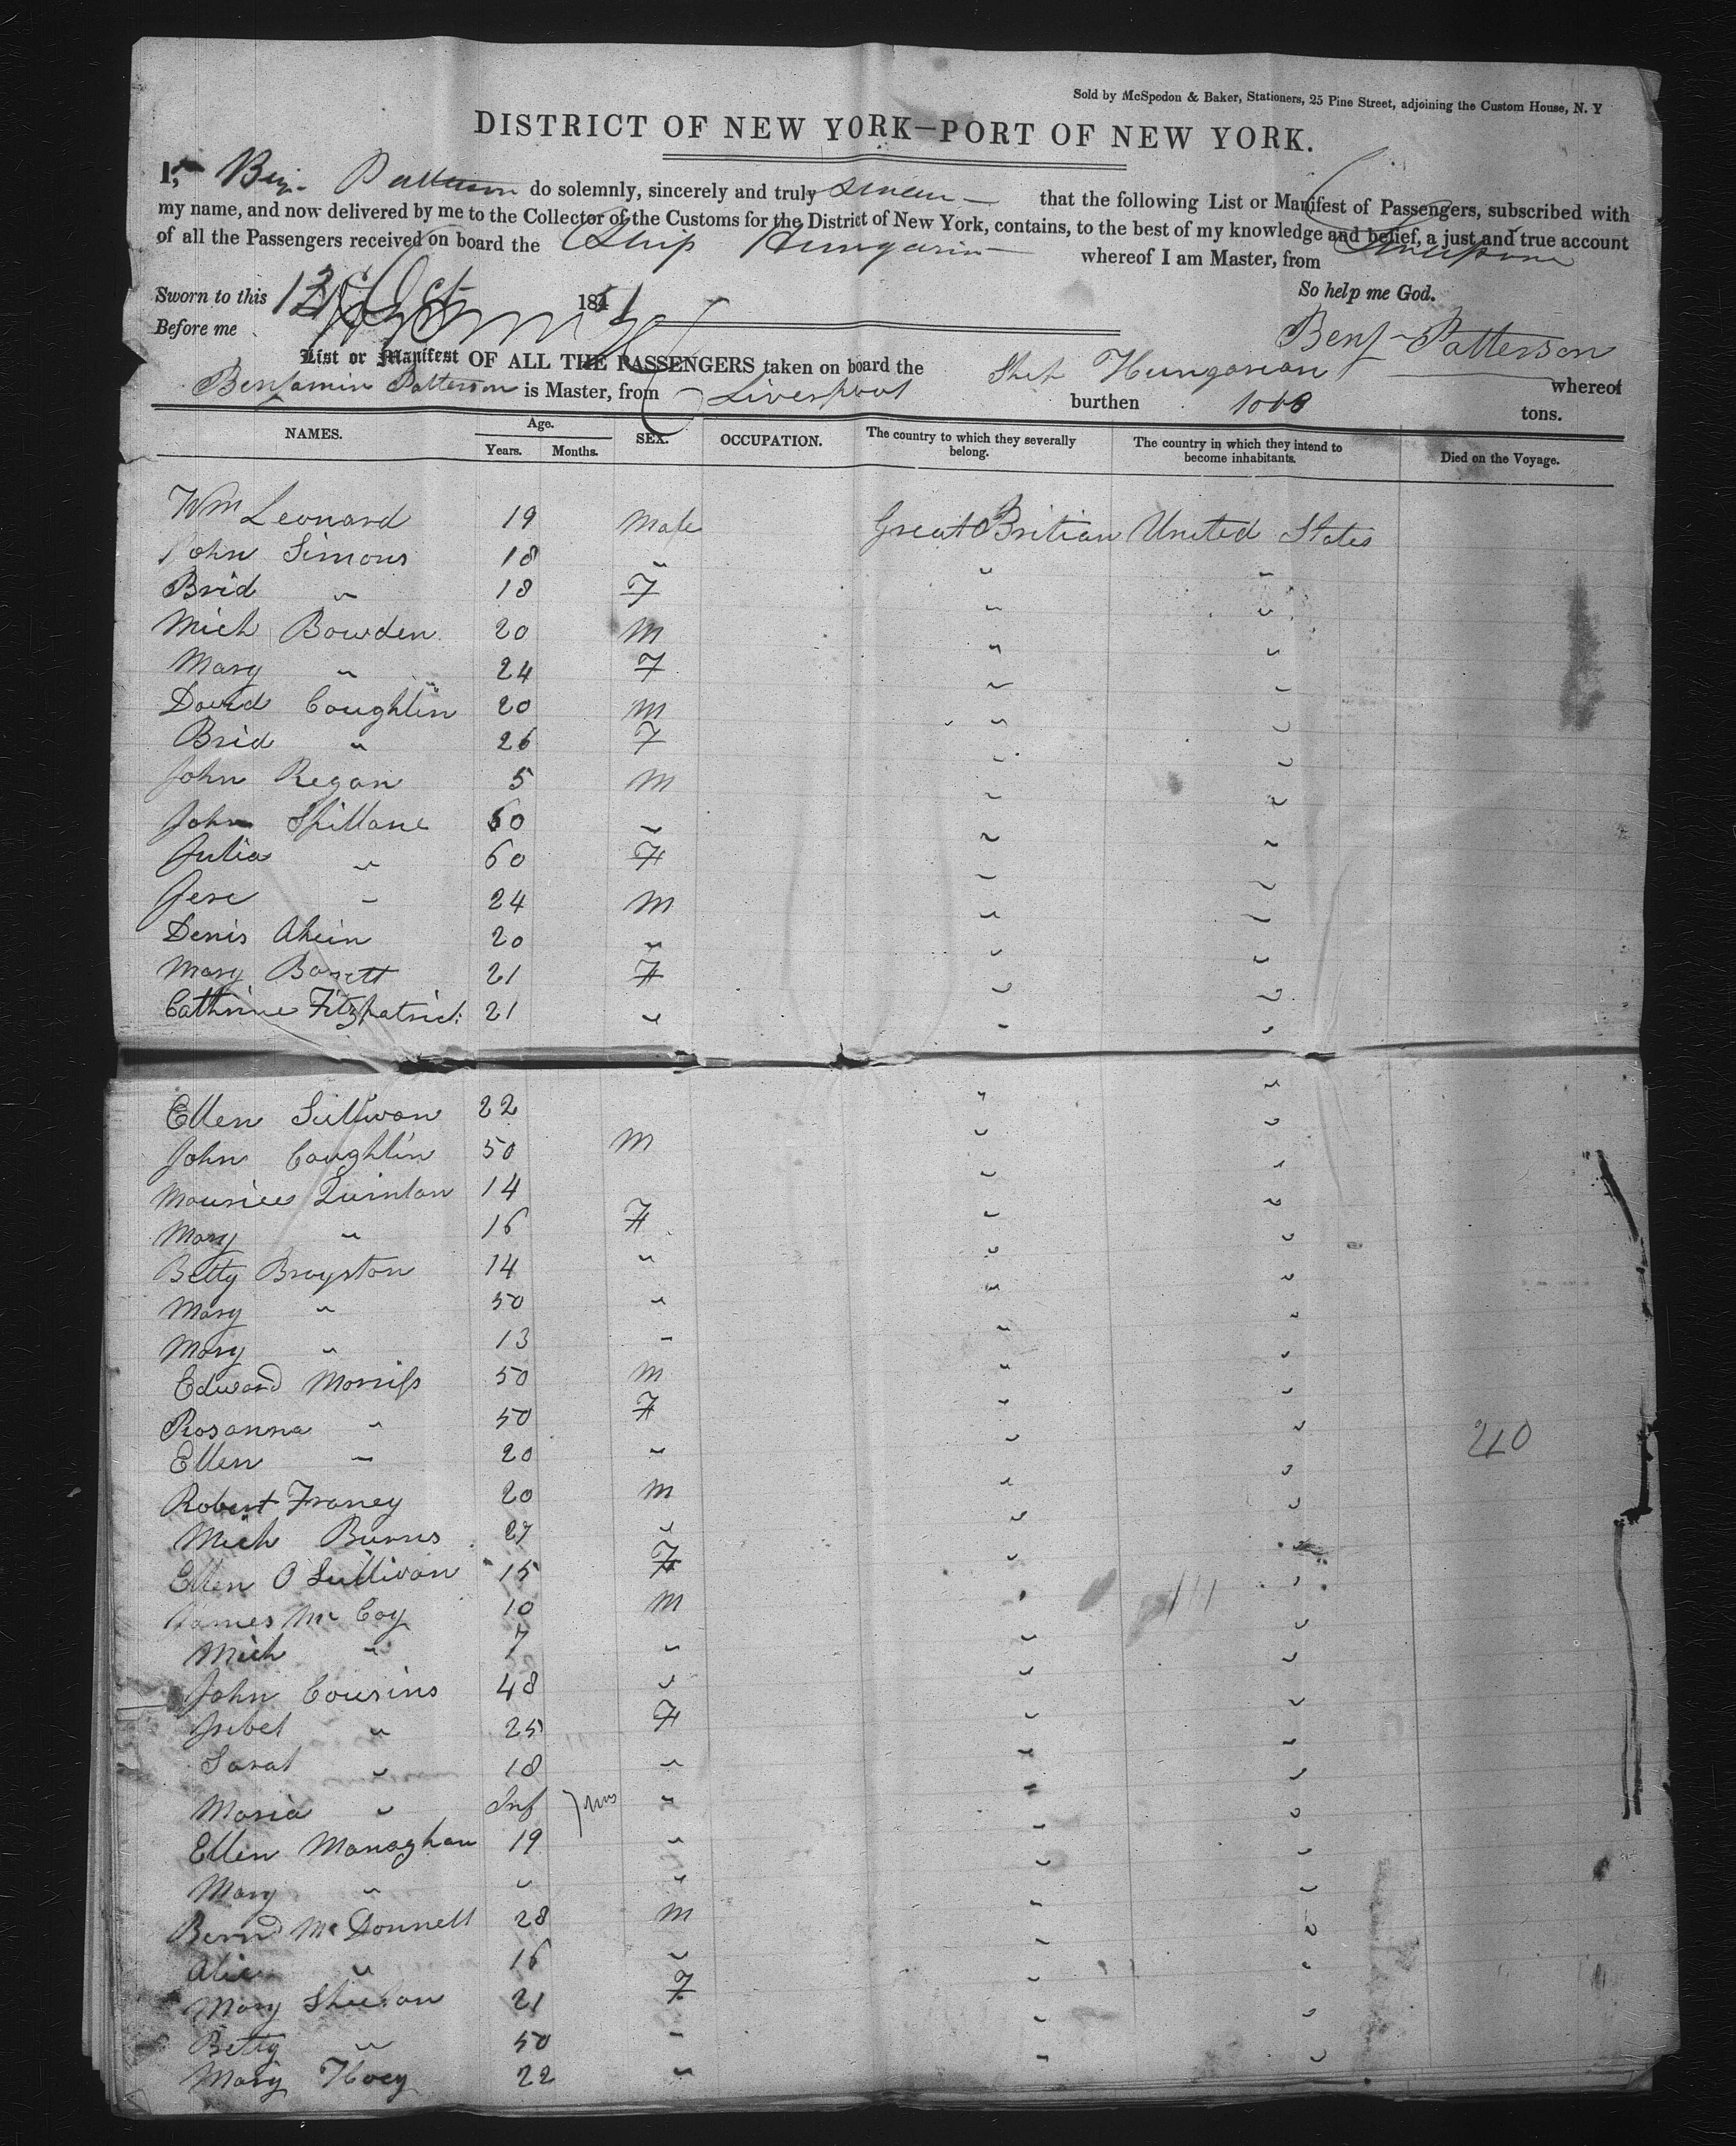 Sold by McSpedon & Baker, Stationers, 25 Pine Street, adjoining the Custom House, N. Y
DISTRICT OF NEW YORK—PORT OF NEW YORK.
I, Benj. Patterson do solemnly, sincerely and truly swear that the following List or Manifest of Passengers, subscribed with
my name, and now delivered by me to the Collector of the Customs for the District of New York, contains, to the best of my knowledge and belief, a just and true account
of all the Passengers received on board the Ship Hungarian whereof I am Master, from Liverpool
So help me God.
Sworn to this 13 Oct 1851
Before me
Benj Patterson
List or Manifest OF ALL THE PASSENGERS taken on board the Ship Hungarian whereof
Benjamin Patterson is Master, from Liverpool burthen tons.
NAMES. Age. Years. Months. SEX. OCCUPATION. The country to which they severally belong. The country in which they intend to become inhabitants. Died on the Voyage.
Wm Leonard 19 Male Great Britian United States
John Simons 18 "  " "
Brid " 18 F " "
Mich Bowden 20 M " "
Mary " 24 F " "
David Coughlin 20 M " "
Brid " 26 F " "
John Regan 5 M " "
John Spillane 60 " " "
Julia " 60 F " "
Jere " 24 M " "
Denis Ahein 20 " " "
Mary Barett 21 F " "
Cathrine Fitzpatrick 21 " " "
Ellen Sullivan 22 " "
John Coughlin 50 M " "
Maurice Quinlan 14 " "
Mary " 16 F " "
Betty Brayston 14 " " "
Mary " 50 " " "
Mary " 13 " " "
Edward Morriss 50 M " "
Rosanna " 50 F " "
Ellen " 20 " " "
240
Robert Franey 20 M " "
Mich Burns 27 " " "
Ellen O Sullivan 15 F " "
James McCoy 10 M " "
Mich " 7 " " "
John Cousins 48 " " "
Isbel " 25 F " "
Sarah " 18 " " "
Maria " Inf 7 ms " " "
Ellen Managhan 19 " " "
Mary " " " " "
Bernd McDonnell 28 M " "
Alice " 16 " " "
Mary Sheehan 21 F " "
Betty " 50 " " "
Mary Hoey 22 " " "